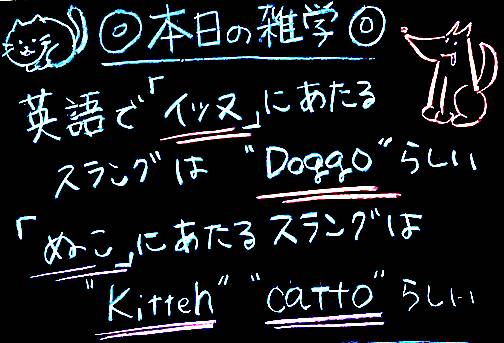 ◎本日の雑学◎
英語で「イッヌ」にあたる
スラングは "Doggo" らしい
「ぬこ」にあたるスラングは
"Kitteh" "catto" らしい